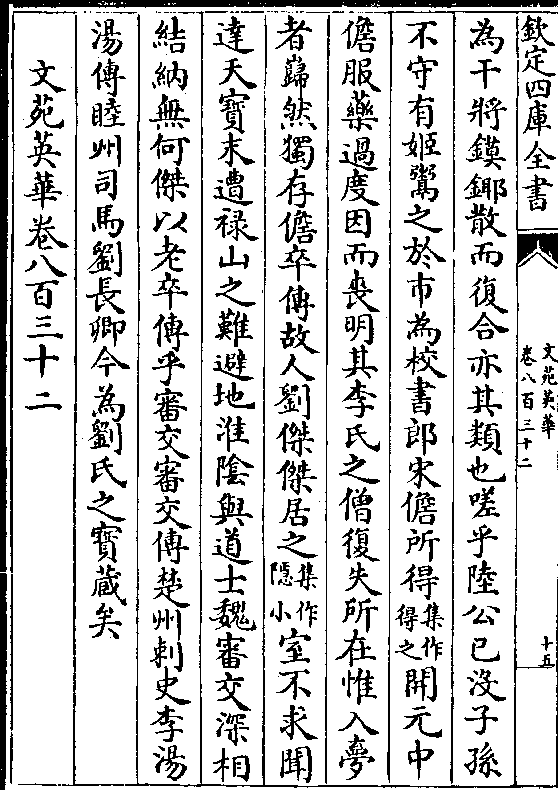 欽定四庫全書
文苑英華
卷八百三十二
十五
為干將鏌鎁散而復合亦其類也嗟乎陸公已沒子孫
不守有姬鬻之於市為校書郎宋儋所得集作得之開元中
儋服藥過度因而喪明其李氏之僧復失所在惟入夢
者巋然獨存儋卒傳故人劉傑傑居之集作隱小室不求聞
達天寶末遭禄山之難避地淮陰與道士魏審交深相
結納無何傑以老卒傳乎審交審交傳楚州刺史李湯
湯傳睦州司馬劉長卿今為劉氏之寶蔵矣
文苑英華卷八百三十二